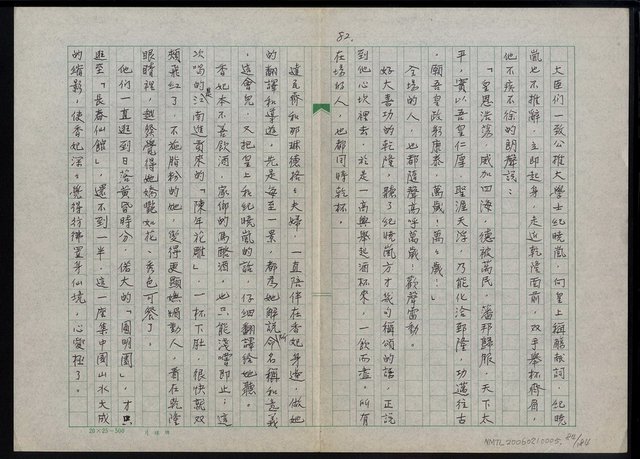 82.
大臣們一致公推大學士紀曉嵐，向皇上稱觴獻詞，紀曉
嵐也不推辭，立即起身，走近乾隆面前，双手舉杯齊眉，
他不疾不徐的朗聲說：
「皇恩浩蕩，威加四海，德被萬民，藩邦歸服，天下太
平，實以吾皇仁厚，聖涯天浮，乃能化洽郅隆，功邁往古
，願吾皇政躬康泰，萬歲！萬々歲！」
全場的人，也都隨聲高呼萬歲！歡聲雷動。
好大喜功的乾隆，聽了紀曉嵐方才幾句稱頌的話，正說
到他心坎裡去，於是一高興舉起酒杯來，一飲而盡。所有
在場的人，也都同時乾杯。
達瓦齊和那琳德格々夫婦，一直陪伴在香妃身邊，做她
的翻譯和導遊，先是每至一景，都為她解說命名稱和意義
，這會兒，又把皇上和紀曉嵐的話，仔細翻譯給她聽。
香妃本不善飲酒，家鄉的馬酪酒，也只能淺嚐即止；這
次喝的是江南進貢來的「陳年花雕」，一杯下肚，很快就双
頰飛紅了，不施脂粉的她，變得更顯嫵媚動人，看在乾隆
眼睛裡，越發覺得她嬌艷如花，秀色可餐了。
他們一直逛到日落黃昏時分，偌大的「圓明園」，才只
逛至「長春仙館」，還不到一半，這一座集中國山水大成
的縮影，使香妃深々覺得彷彿置身仙境，心愛極了。
20×25=500
NMTL20060210005
82/184